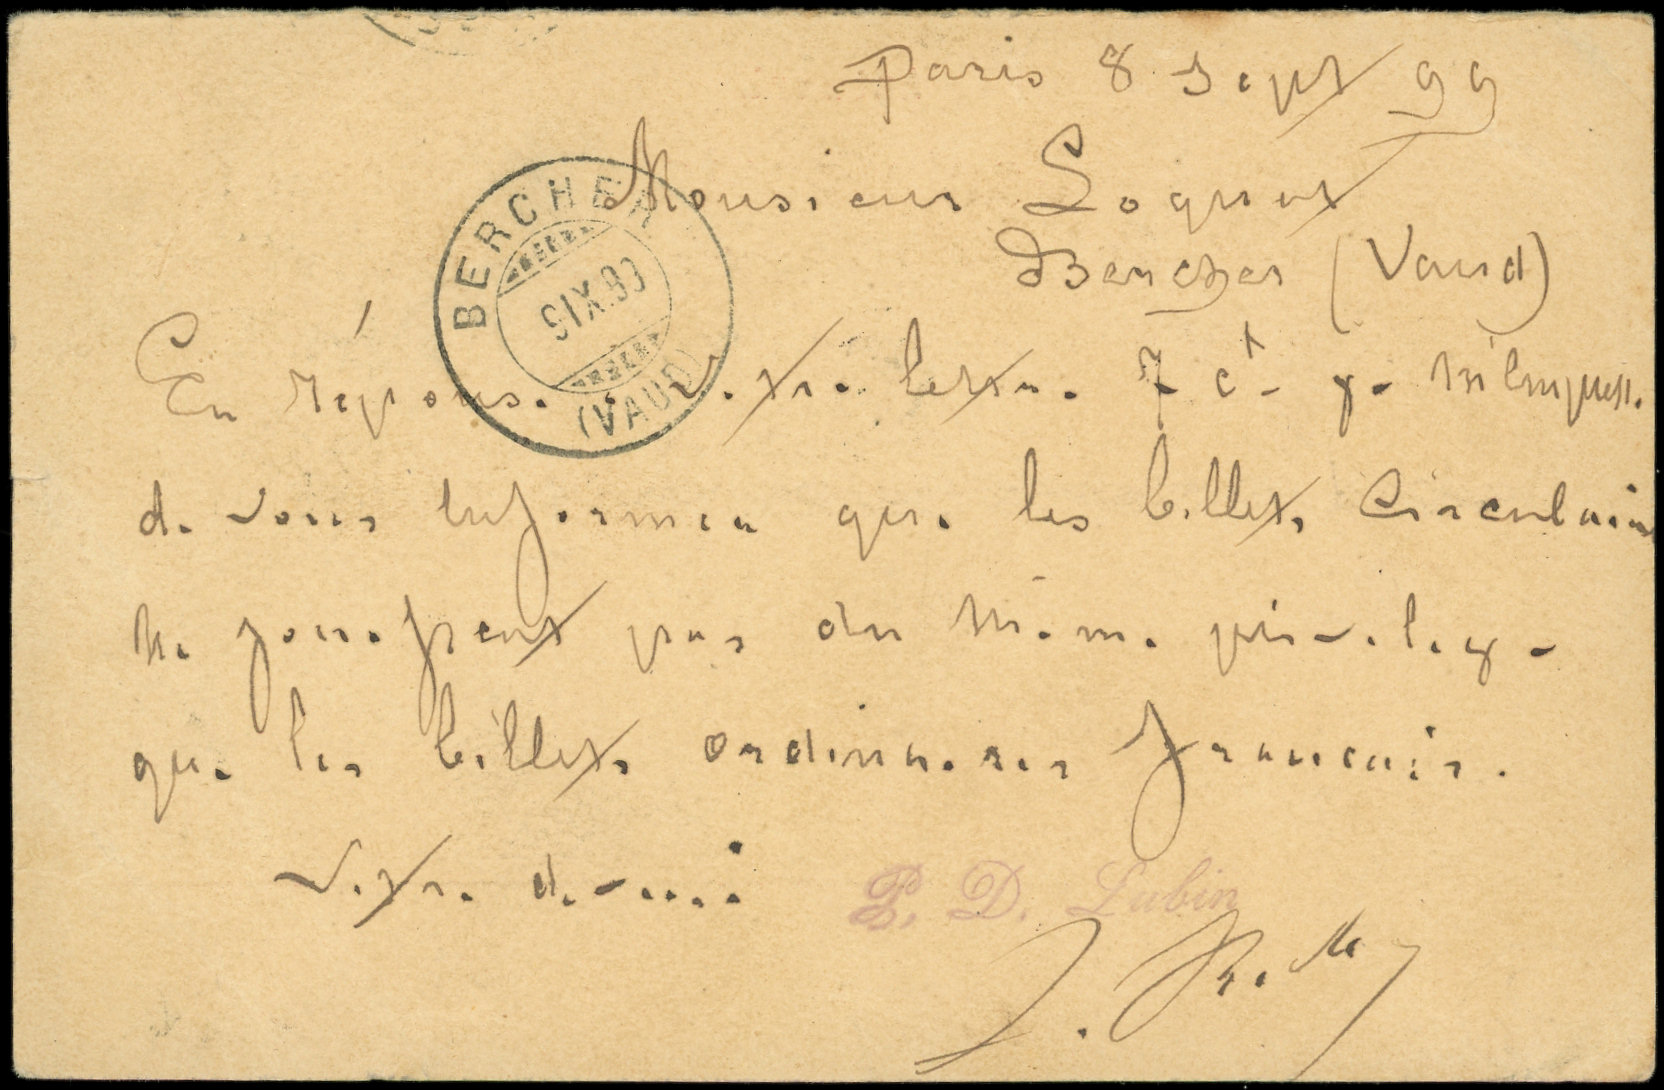 Paris 8 Sept 99
Monsieur Loquet
Bercher (Vaud)
BERCHER
9 IX 99
(VAUD)
En réponse à votre lettre 7 ct je m'empresse
de vous informer que les billets circulaires
ne jouissent pas du meme privilege
que les billets ordinaires francais.
Votre devoué
P. D. Lubin